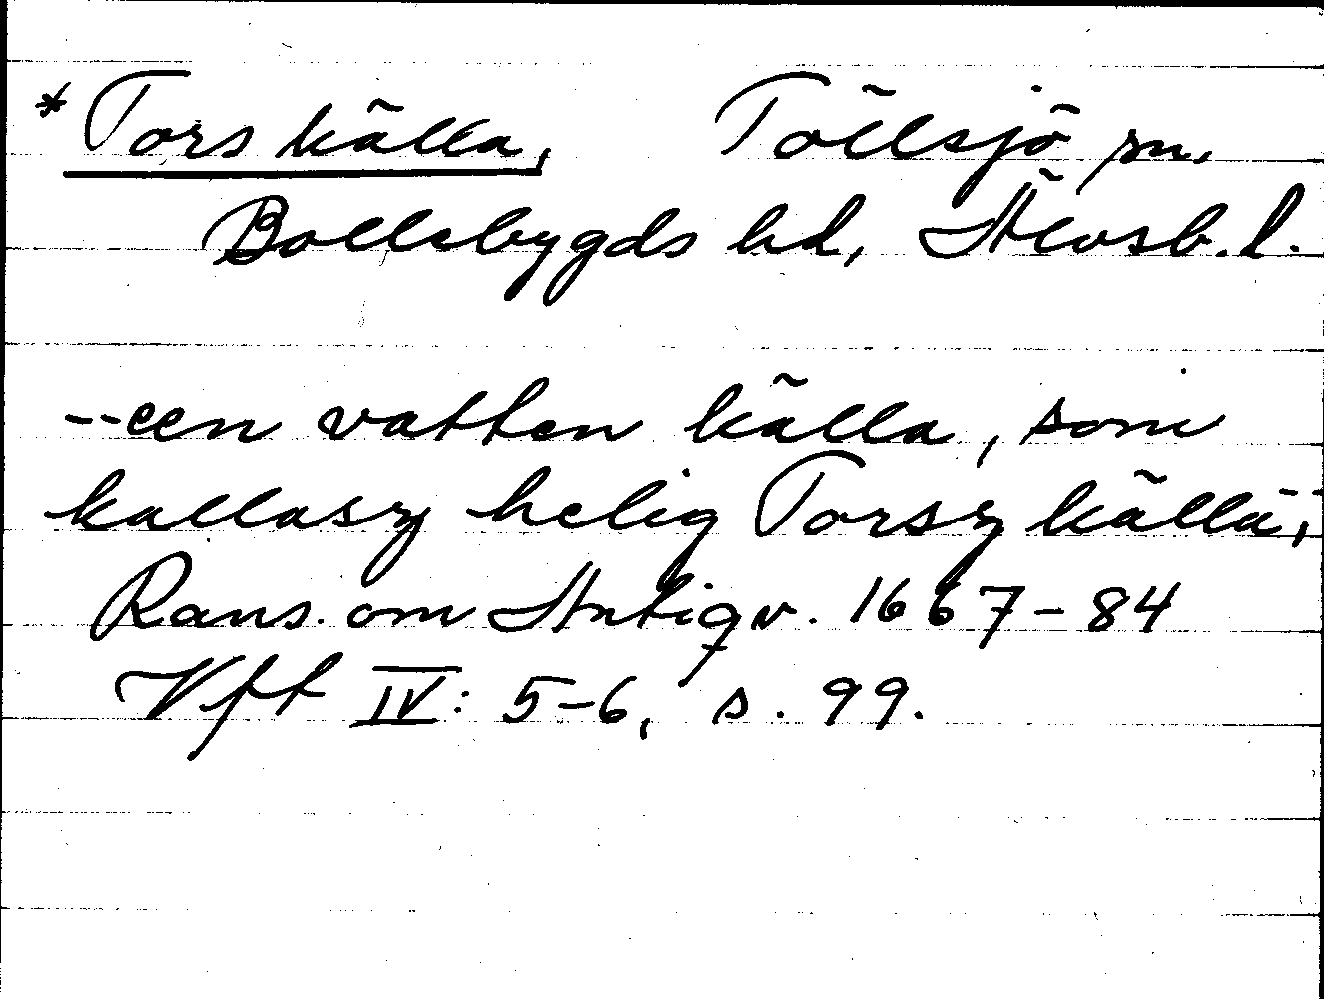 * Tors källa, Töllsjö sn,
Bollebygds hd, Älvsb. l.
--een vatten källa, som
kallasz helig Torsz källä;
Rans. om Antiqv. 1667-84
Vft IV: 5-6, s. 99.